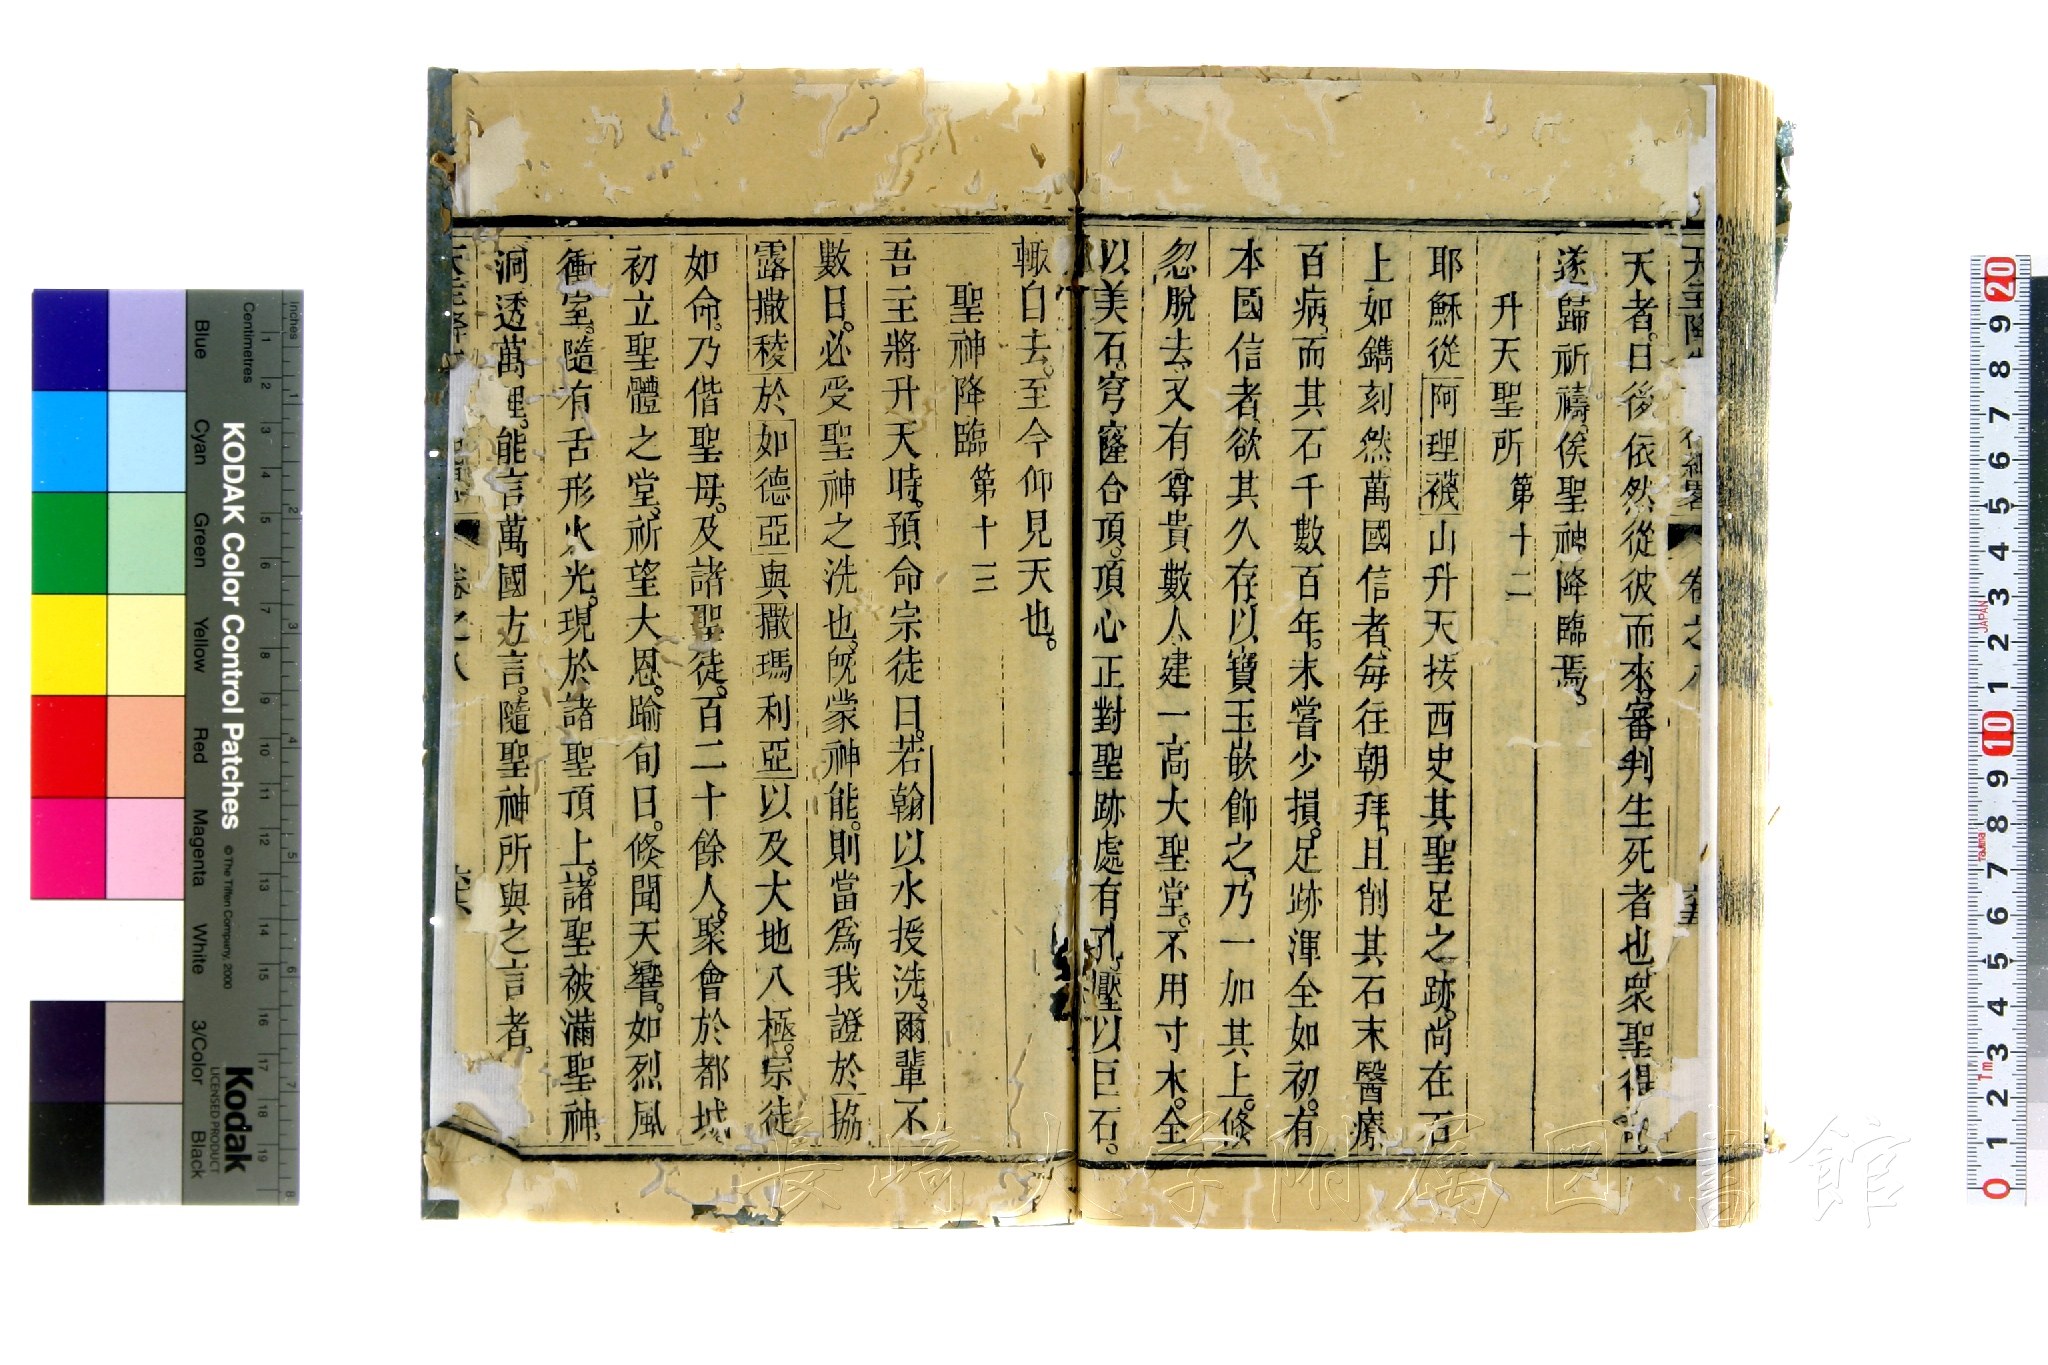 天者。日後依然從彼而來。審判生死者也。衆聖得
遂歸祈禱。俟聖神降臨焉。
升天聖所 第十二
耶穌從阿理襪山升天。按西史其聖足之跡。尚在石
上如鐫刻然。萬國信者。每往朝拜。且削其石末醫療
百病。而其石千數百年。未嘗少損。足跡渾全如初。有
本國信者。欲其久存。以寶玉嵌飾之。乃一加其上。倏
忽脫去。又有尊貴數人建一高大聖堂。不用寸木。全
以美石。穹窿合頂。頂心正對聖跡處有孔。壓以巨石。
輙自去。至今仰見天也。
聖神降臨 第十三
吾主將升天時。預命宗徒曰。若翰以水授洗。爾輩不
數日。必受聖神之洗也。旣蒙神能。則當爲我證於協
露撒稜於如德亞與撒瑪利亞以及大地八極。宗徒
如命。乃偕聖母。及諸聖徒。百二十餘人。聚會於都城
初立聖體之堂。祈望大恩。踰旬日。倏聞天響。如烈風
衝室。隨有舌形火光。現於諸聖頂上。諸聖被滿聖神。
洞透萬理。能言萬國方言。隨聖神所與之言者。
卷之八
長崎大学附属図書館
KODAK Color Control Patches
© The Tiffen Company, 2000
Kodak
LICENSED PRODUCT
Inches
Centimetres
Blue
Cyan
Green
Yellow
Red
Magenta
White
3/Color
Black
JAPAN